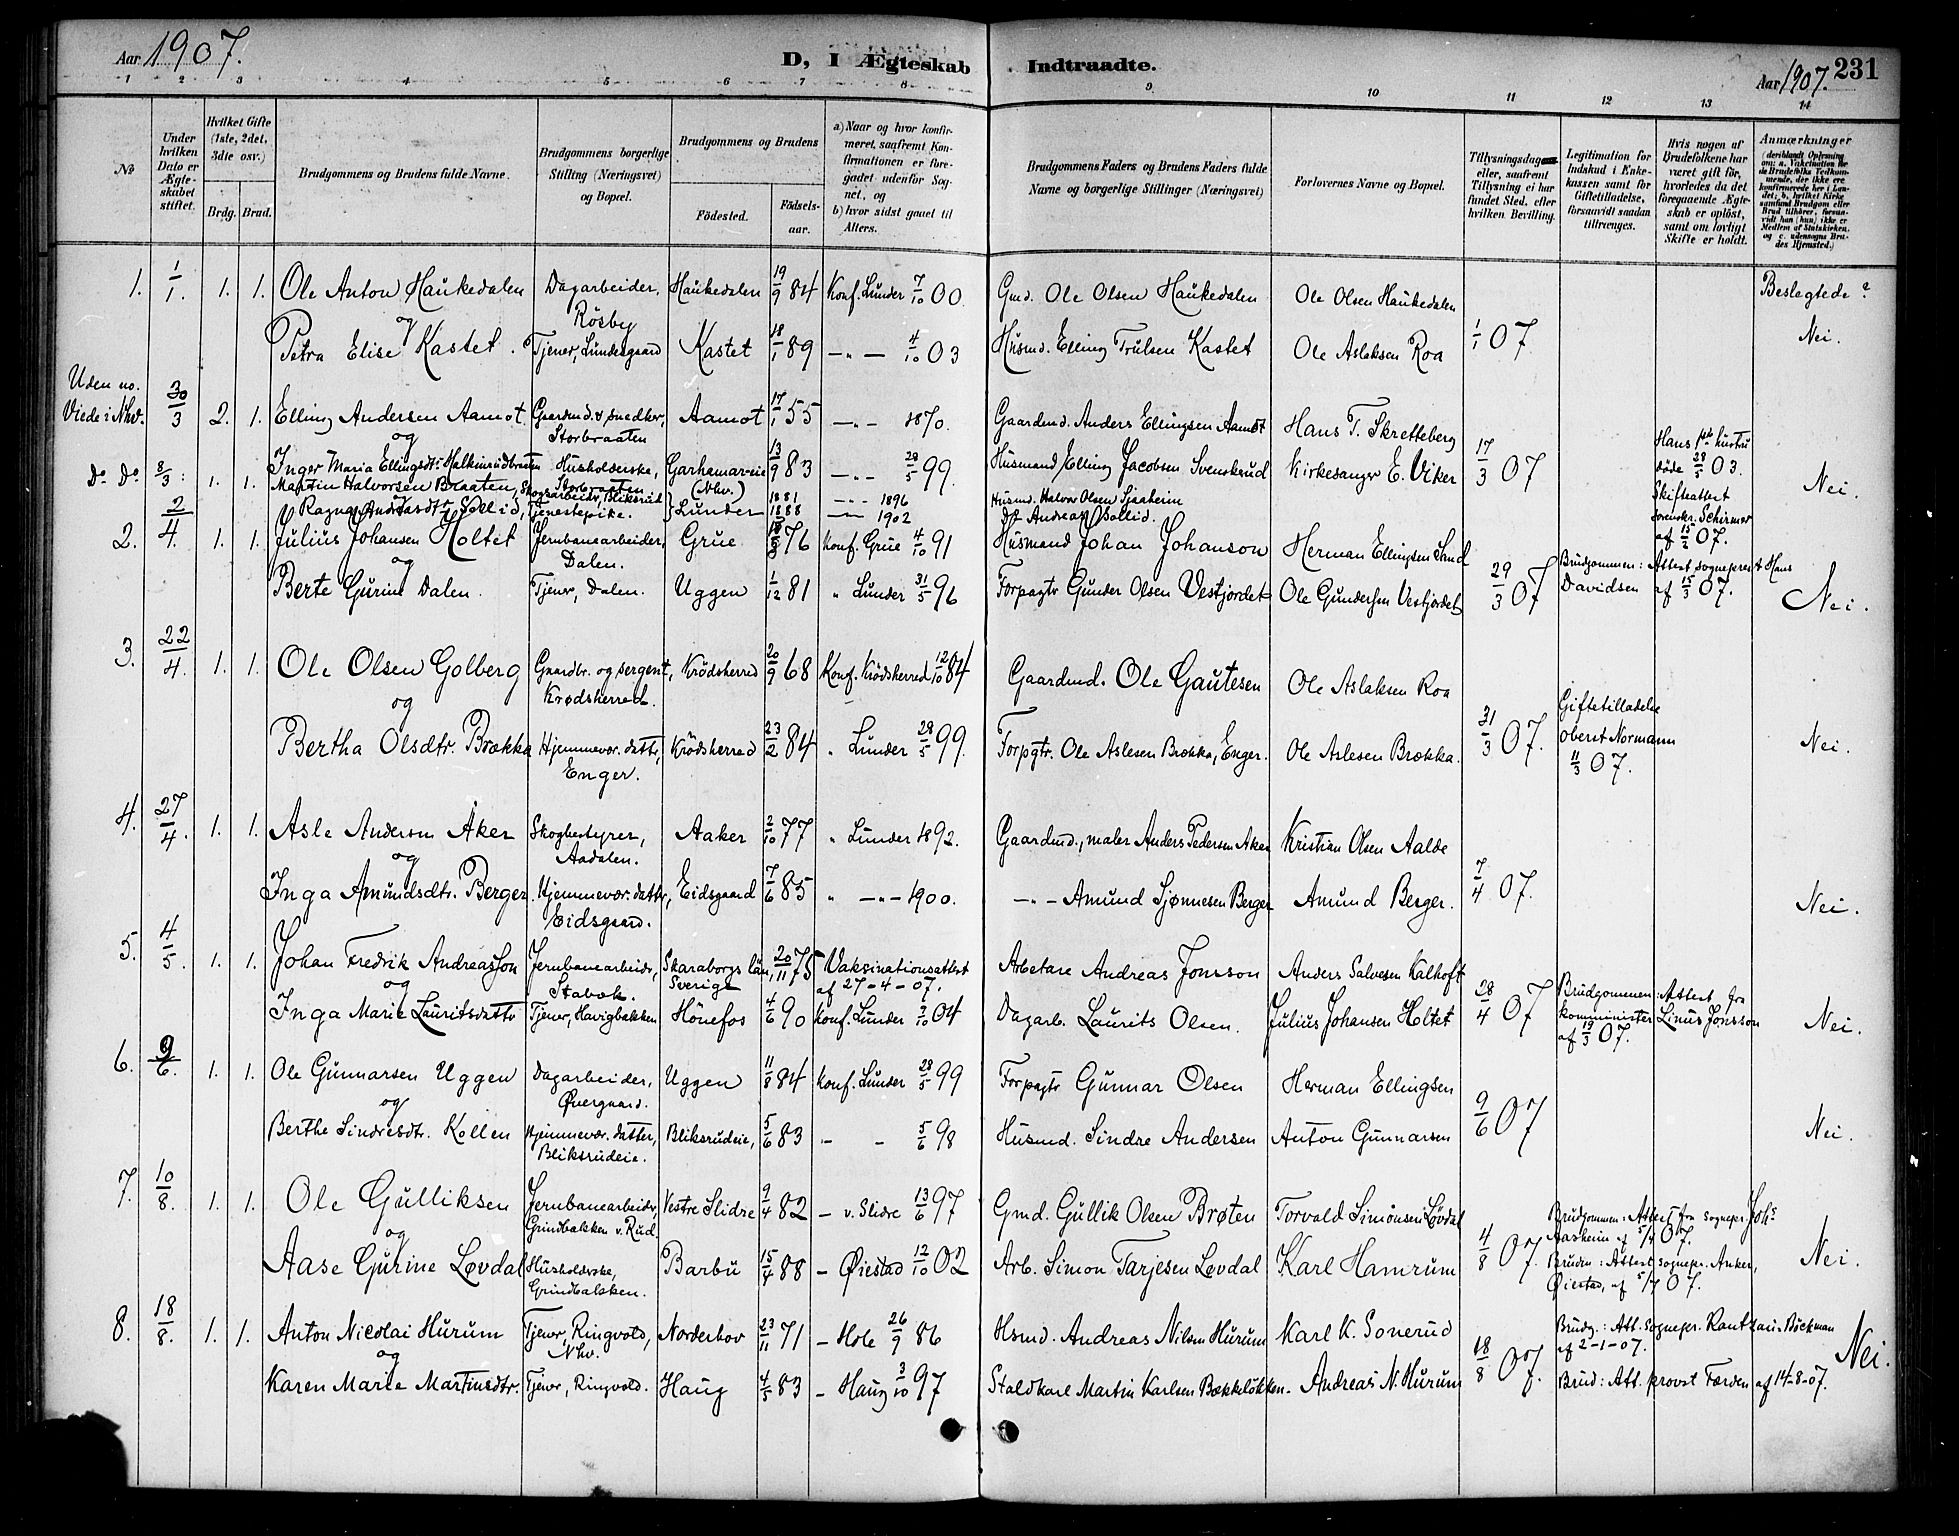 Aar 1907.
D, I Ægteskab Indtraadte.
Aar 1907. 231
1 2 3 4 5 6 7 8 9 10 11 12 13 14
No
Under hvilken Dato er Ægteskabet stiftet.
Hvilket Gifte (1ste, 2det, 3die osv.)
Brdg. Brud.
Brudgommens og Brudens fulde Navne.
Brudgommens borgerlige Stilling (Næringsvei) og Bopæl.
Brudgommens og Brudens
Födested. Födselsaar.
a) Naar og hvor konfirmeret, saafremt Konfirmationen er foregaaet udenfor Sognet, og
b) hvor sidst gaaet til Alters.
Brudgommens Faders og Brudens Faders fulde Navne og borgerlige Stillinger (Næringsvei)
Forlovernes Navne og Bopæl.
Tillysningsdagene eller, saafremt Tillysning ei har fundet Sted, efter hvilken Bevilling.
Legitimation for Indskud i Enkekassen samt for Giftetilladelse, forsaavidt saadan tiltrænges.
Hvis nogen af Brudefolkene har været gift för, hvorledes da det foregaaende Ægteskab er oplöst, samt om lovligt Skifte er holdt.
Anmærkninger
(deriblandt Oplysning om: a. Vakcination for de Brudefolks Vedkommende, der ikke ere konfirmerede her i Landet; b. hvilket Kirkesamfund Brudgom eller Brud tilhörer, forsaavidt han (hun) ikke er Medlem af Statskirken, og c. udensogns Brudes Hjemsted.)
1. 1/1. 1. 1. Ole Anton Haukedalen Dagarbeider, Haukedalen 19/9 84 Konf. Lunder 7/10 00. Gmd. Ole Olsen Haukedalen Ole Olsen Haukedalen Beslegtede?
og Rösby
Petra Elise Kastet. Tjener, Lundesgaard Kastet 18/1 89 —"— 4/10 03 Husmd. Elling Trulsen Kastet Ole Aslaksen Roa 1/1 07 Nei.
Uden no.
Viede i Nhv. 30/3 2. 1. Elling Andersen Aamot Gaardmd. & snedker, Aamot 17/1 55 —"— 1870. Gaardmd. Anders Ellingsen Aamot Hans T. Skretteberg
og Storbraaten
Inger Maria Ellingsdtr. Halkinrudbraaten Husholderske, Garhamar-eie 13/9 83 —"— 28/5 99. Husmand Elling Jacobsen Svenskrud Kirkesanger E. Viker 17/3 07 Hans 1ste hustru døde 28/5 03. Nei.
Storbraaten (Nhv.)
Do Do 8/3: 1. 1. Martin Halvorsen Braaten, Skogsarbeider, Bliksrud 1881 —"— 1896 Husmd. Halvor Olsen Sjaaheim
og Ragna Andreasdtr. Sollid, Tjenestepike. } Lunder 1888 —"— 1902 do Andreas Sollid. Skifteattest sorenskr. Schirmer af 15/2 07.
2. 2/4. 1. 1. Julius Johansen Holtet Jernbanearbeider, Grue 76 Konf. Grue 4/10 91 Husmand Johan Johanson Herman Ellingsen Sand
og Dalen.
Berte Gurine Dalen. Tjener, Dalen. Uggen 1/12 81 " Lunder 31/5 96 Forpagtr Gunder Olsen Vestjordet Ole Gundersen Vestjordet 29/3 07 Brudgommen: Attest sogneprest Hans Davidsen af 15/3 07. Nei.
3. 22/4. 1. 1. Ole Olsen Golberg Gaardbr. og sergent, Krödsherred 20/9 68 Konf. Krödsherred 12/10 84 Gaardmd. Ole Gautesen Ole Aslaksen Roa
og Krødsherred.
Bertha Olsdtr. Brækka Hjemmevær. datter, Krödsherred 23/2 84 " Lunder 28/5 99. Forpgtr. Ole Aslesen Brækka, Enger. Ole Aslesen Brækka. 31/3 07. Giftetilladelse oberst Normann 11/3 07. Nei.
Enger.
4. 27/4. 1. 1. Asle Andersen Aker Skogbestyrer, Aaker 2/10 77 " Lunder 1892. Gaardmd., maler Anders Pedersen Aker Kristian Olsen Aalde
og Aadalen.
Inga Amundsdtr. Berger Hjemmevær. datter, Eidsgaard 7/6 85 " —"— 1900. —"— Amund Sjønnesen Berger Amund Berger. 7/4 07. Nei.
Eidsgaard.
5. 4/5. 1. 1. Johan Fredrik Andreasson Jernbanearbeider, Skaraborgs län, Sverige 20/11 75 Vaksinationsattest af 27-4-07. Arbetare Andreas Jonsson Anders Salvesen Kalhoft
og Stabæk.
Inga Marie Lauritsdatter Tjener, Havigbakken Hönefos 4/6 90 Konf. Lunder 2/10 04 Dagarb. Laurits Olsen. Julius Johansen Holtet 28/4 07 Brudgommen: Attest fra komminister Linus Jonsson af 19/3 07. Nei.
6. 9/6. 1. 1. Ole Gunnarsen Uggen Dagarbeider, Uggen 11/8 84 Konf. Lunder 28/5 99 Forpagtr Gunnar Olsen Herman Ellingsen
og Øvergaard.
Berthe Sindresdtr. Kollen Hjemmevær. datter, Bliksrudeie, 5/6 83 — — 5/6 98 Husmd. Sindre Andersen Anton Gunnarsen 9/6 07 Nei.
Bliksrudeie.
7. 10/8. 1. 1. Ole Gulliksen Jernbanearbeider, Vestre Slidre 9/4 82 — v. Slidre 13/6 97 Gmd. Gullik Olsen Brøten Torvald Simonsen Løvdal
og Grindbakken v. Rud. Brudgommen: Attest fra sognepr. Johs Aasheim af 5/4 07.
Aase Gurine Løvdal Husholderske, Barbu 15/4 88 — Øiestad 12/10 02 Arb. Simon Tarjesen Løvdal Karl Hamrum 4/8 07. Bruden: Attest sognepr. Anker, Øiestad, af 5/7 07. Nei.
Grindbakken.
8. 18/8. 1. 1. Anton Nicolai Hurum Tjener, Ringvold, Norderhov 23/11 71 — Hole 26/9 86 Hsmd. Andreas Nilsen Hurum Karl K. Sonerud Brudg.: Att. sognepr. Rantzau-Bøckman af 2-1-07.
og Nhv. Nei.
Karen Marie Martinsdtr. Tjener, Ringvold. Haug 4/5 83 — Haug 3/10 97 Staldkarl Martin Karlsen Bækkeløkken. Andreas N. Hurum 18/8 07. Brud: Att. provst Færden af 14-8-07.